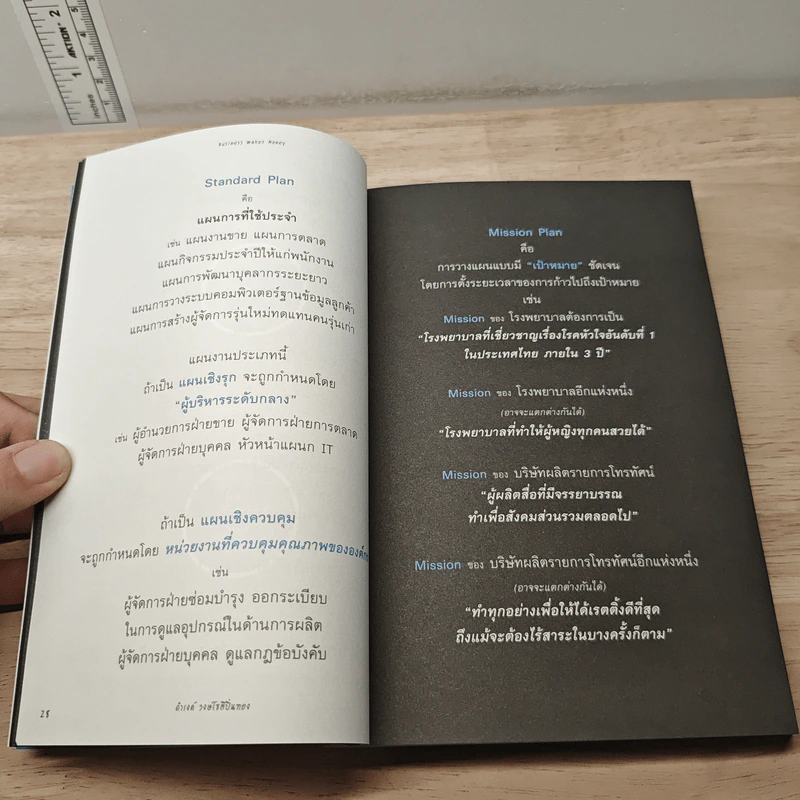 2
AKTION®
1
inches
Business Makes Money
Standard Plan
คือ
แผนการที่ใช้ประจำ
เช่น แผนงานขาย แผนการตลาด
แผนกิจกรรมประจำปีให้แก่พนักงาน
แผนการพัฒนาบุคลากรระยะยาว
แผนการวางระบบคอมพิวเตอร์ฐานข้อมูลลูกค้า
แผนการสร้างผู้จัดการรุ่นใหม่ทดแทนคนรุ่นเก่า
แผนงานประเภทนี้
ถ้าเป็น แผนเชิงรุก จะถูกกำหนดโดย
“ผู้บริหารระดับกลาง”
เช่น ผู้อำนวยการฝ่ายขาย ผู้จัดการฝ่ายการตลาด
ผู้จัดการฝ่ายบุคคล หัวหน้าแผนก IT
ถ้าเป็น แผนเชิงควบคุม
จะถูกกำหนดโดย หน่วยงานที่ควบคุมคุณภาพขององค์กร
เช่น
ผู้จัดการฝ่ายซ่อมบำรุง ออกระเบียบ
ในการดูแลอุปกรณ์ในด้านการผลิต
ผู้จัดการฝ่ายบุคคล ดูแลกฎข้อบังคับ
28
Mission Plan
คือ
การวางแผนแบบมี “เป้าหมาย” ชัดเจน
โดยการตั้งระยะเวลาของการก้าวไปถึงเป้าหมาย
เช่น
Mission ของ โรงพยาบาลต้องการเป็น
“โรงพยาบาลที่เชี่ยวชาญเรื่องโรคหัวใจอันดับที่ 1
ในประเทศไทย ภายใน 3 ปี”
Mission ของ โรงพยาบาลอีกแห่งหนึ่ง
(อาจจะแตกต่างกันได้)
“โรงพยาบาลที่ทำให้ผู้หญิงทุกคนสวยได้”
Mission ของ บริษัทผลิตรายการโทรทัศน์
“ผู้ผลิตสื่อที่มีจรรยาบรรณ
ทำเพื่อสังคมส่วนรวมตลอดไป”
Mission ของ บริษัทผลิตรายการโทรทัศน์อีกแห่งหนึ่ง
(อาจจะแตกต่างกันได้)
“ทำทุกอย่างเพื่อให้ได้เรตติ้งดีที่สุด
ถึงแม้จะต้องไร้สาระในบางครั้งก็ตาม”